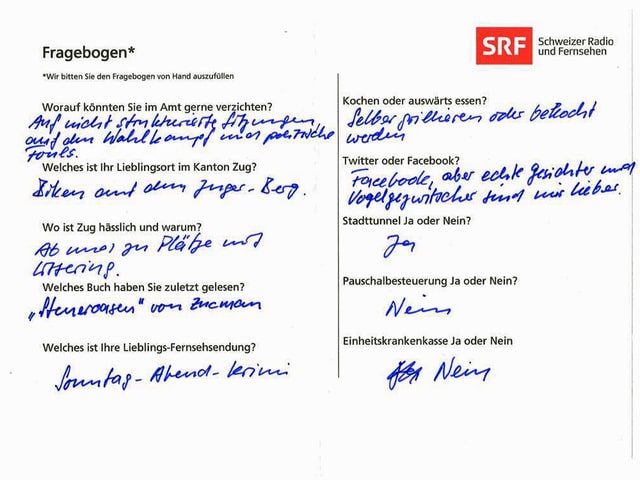 SRF Schweizer Radio
und Fernsehen
Fragebogen*
*Wir bitten Sie den Fragebogen von Hand auszufüllen
Worauf könnten Sie im Amt gerne verzichten?
Auf nicht strukturierte Sitzungen,
auf den Wahlkampf und politische
Fouls.
Welches ist Ihr Lieblingsort im Kanton Zug?
Biken auf dem Zuger-Berg.
Wo ist Zug hässlich und warum?
Ab und zu Plätze mit
Littering.
Welches Buch haben Sie zuletzt gelesen?
„Steueroasen" von Zucman
Welches ist Ihre Lieblings-Fernsehsendung?
Sonntag-Abend-krimi
Kochen oder auswärts essen?
Selber grillieren oder bekocht
werden
Twitter oder Facebook?
Facebook, aber echte Gesichter und
Vogelgezwitscher sind mir lieber.
Stadttunnel Ja oder Nein?
Ja
Pauschalbesteuerung Ja oder Nein?
Nein
Einheitskrankenkasse Ja oder Nein
Nein